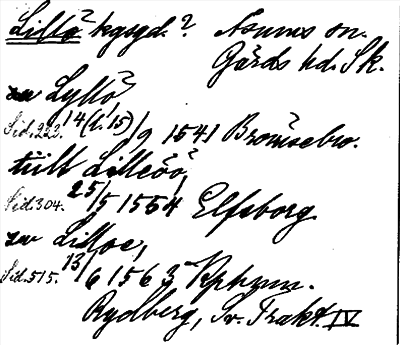 Lillö kgsgd.? Åsums sn.
Gärds hd. Sk.
zu Lyllö,
Sid. 222. 14 (l. 15)/9 1541 Brömsebro.
tiill Lilleöö,
Sid. 304. 25/5 1554 Elfsborg.
zu Lilloe,
Sid. 515. 13/6 1563 Kphmn.
Rydberg, Sv. Trakt. IV